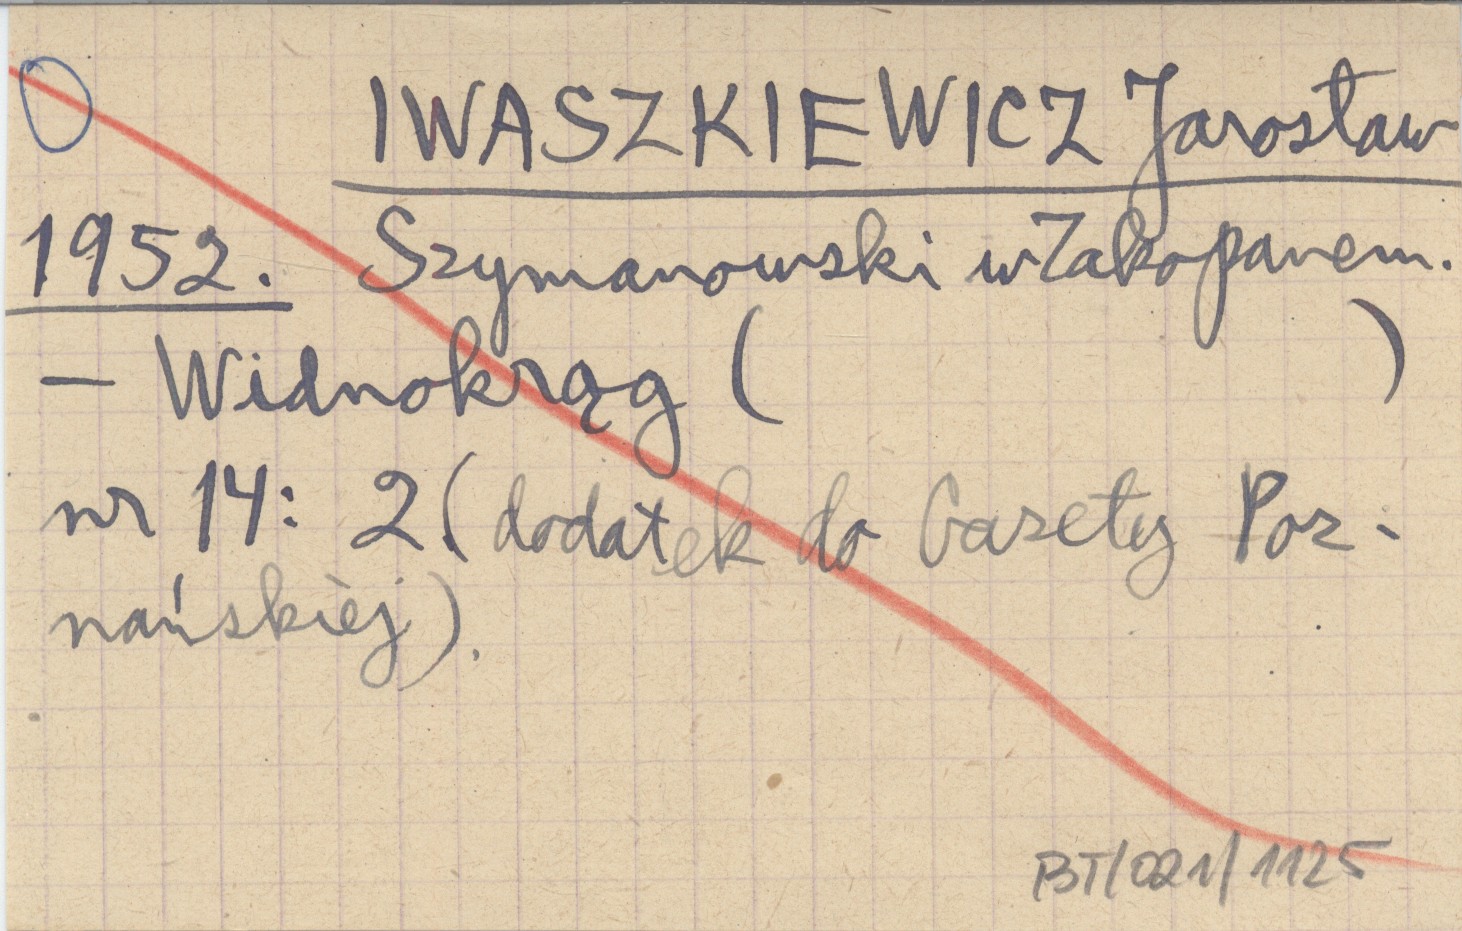 IWASZKIEWICZ Jarosław
1952. Szymanowski w Zakopanem.
— Widnokrąg ( )
nr 14: 2 (dodatek do Gazety Poz-
nańskiej).
BT/021/1125